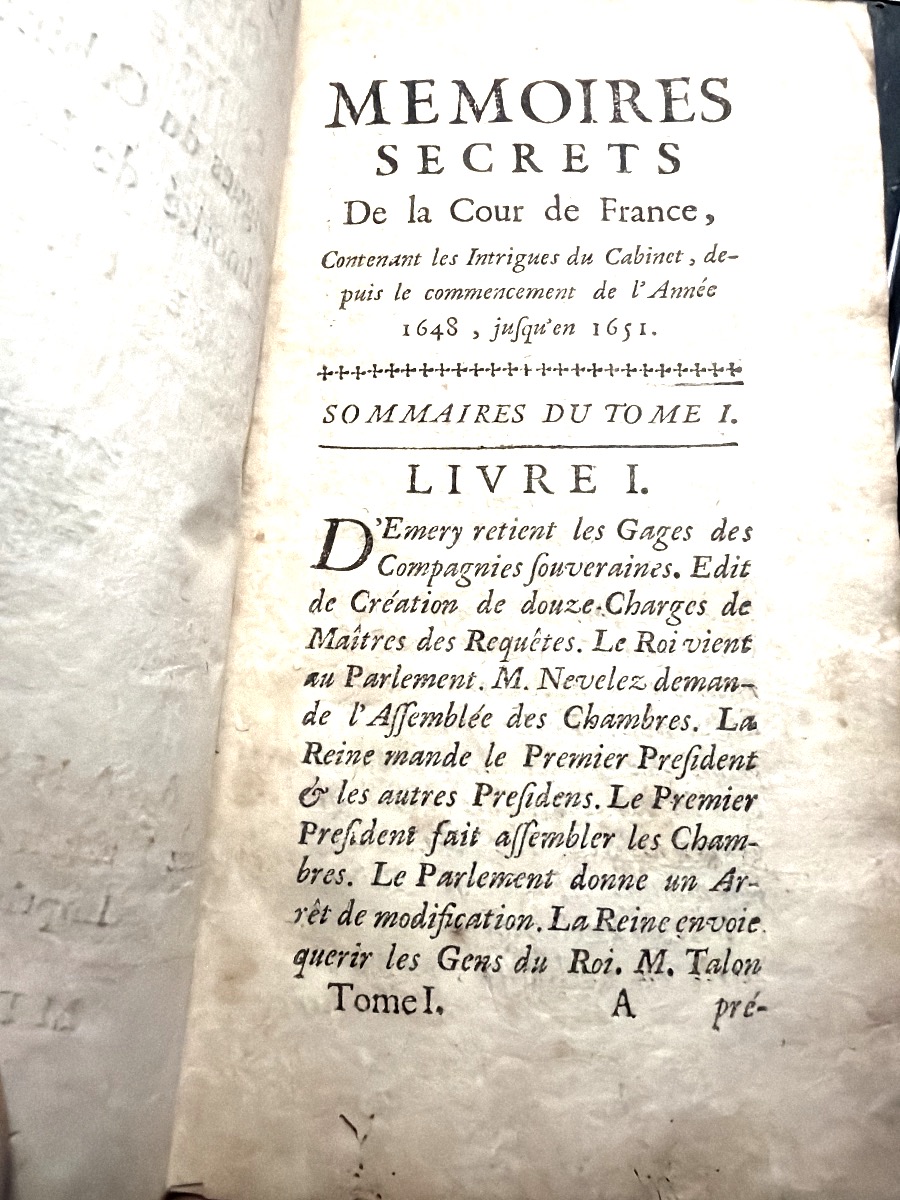 MEMOIRES
SECRETS
De la Cour de France,
Contenant les Intrigues du Cabinet, de-
puis le commencement de l'Année
1648, juſqu'en 1651.
SOMMAIRES DU TOME I.
LIVRE I.
D'Emery retient les Gages des
Compagnies ſouveraines. Edit
de Création de douze Charges de
Maîtres des Requêtes. Le Roi vient
au Parlement. M. Nevelez deman-
de l'Aſſemblée des Chambres. La
Reine mande le Premier Preſident
& les autres Preſidens. Le Premier
Preſident fait aſſembler les Cham-
bres. Le Parlement donne un Ar-
rêt de modification. La Reine envoie
querir les Gens du Roi. M. Talon
Tome I. A pré-